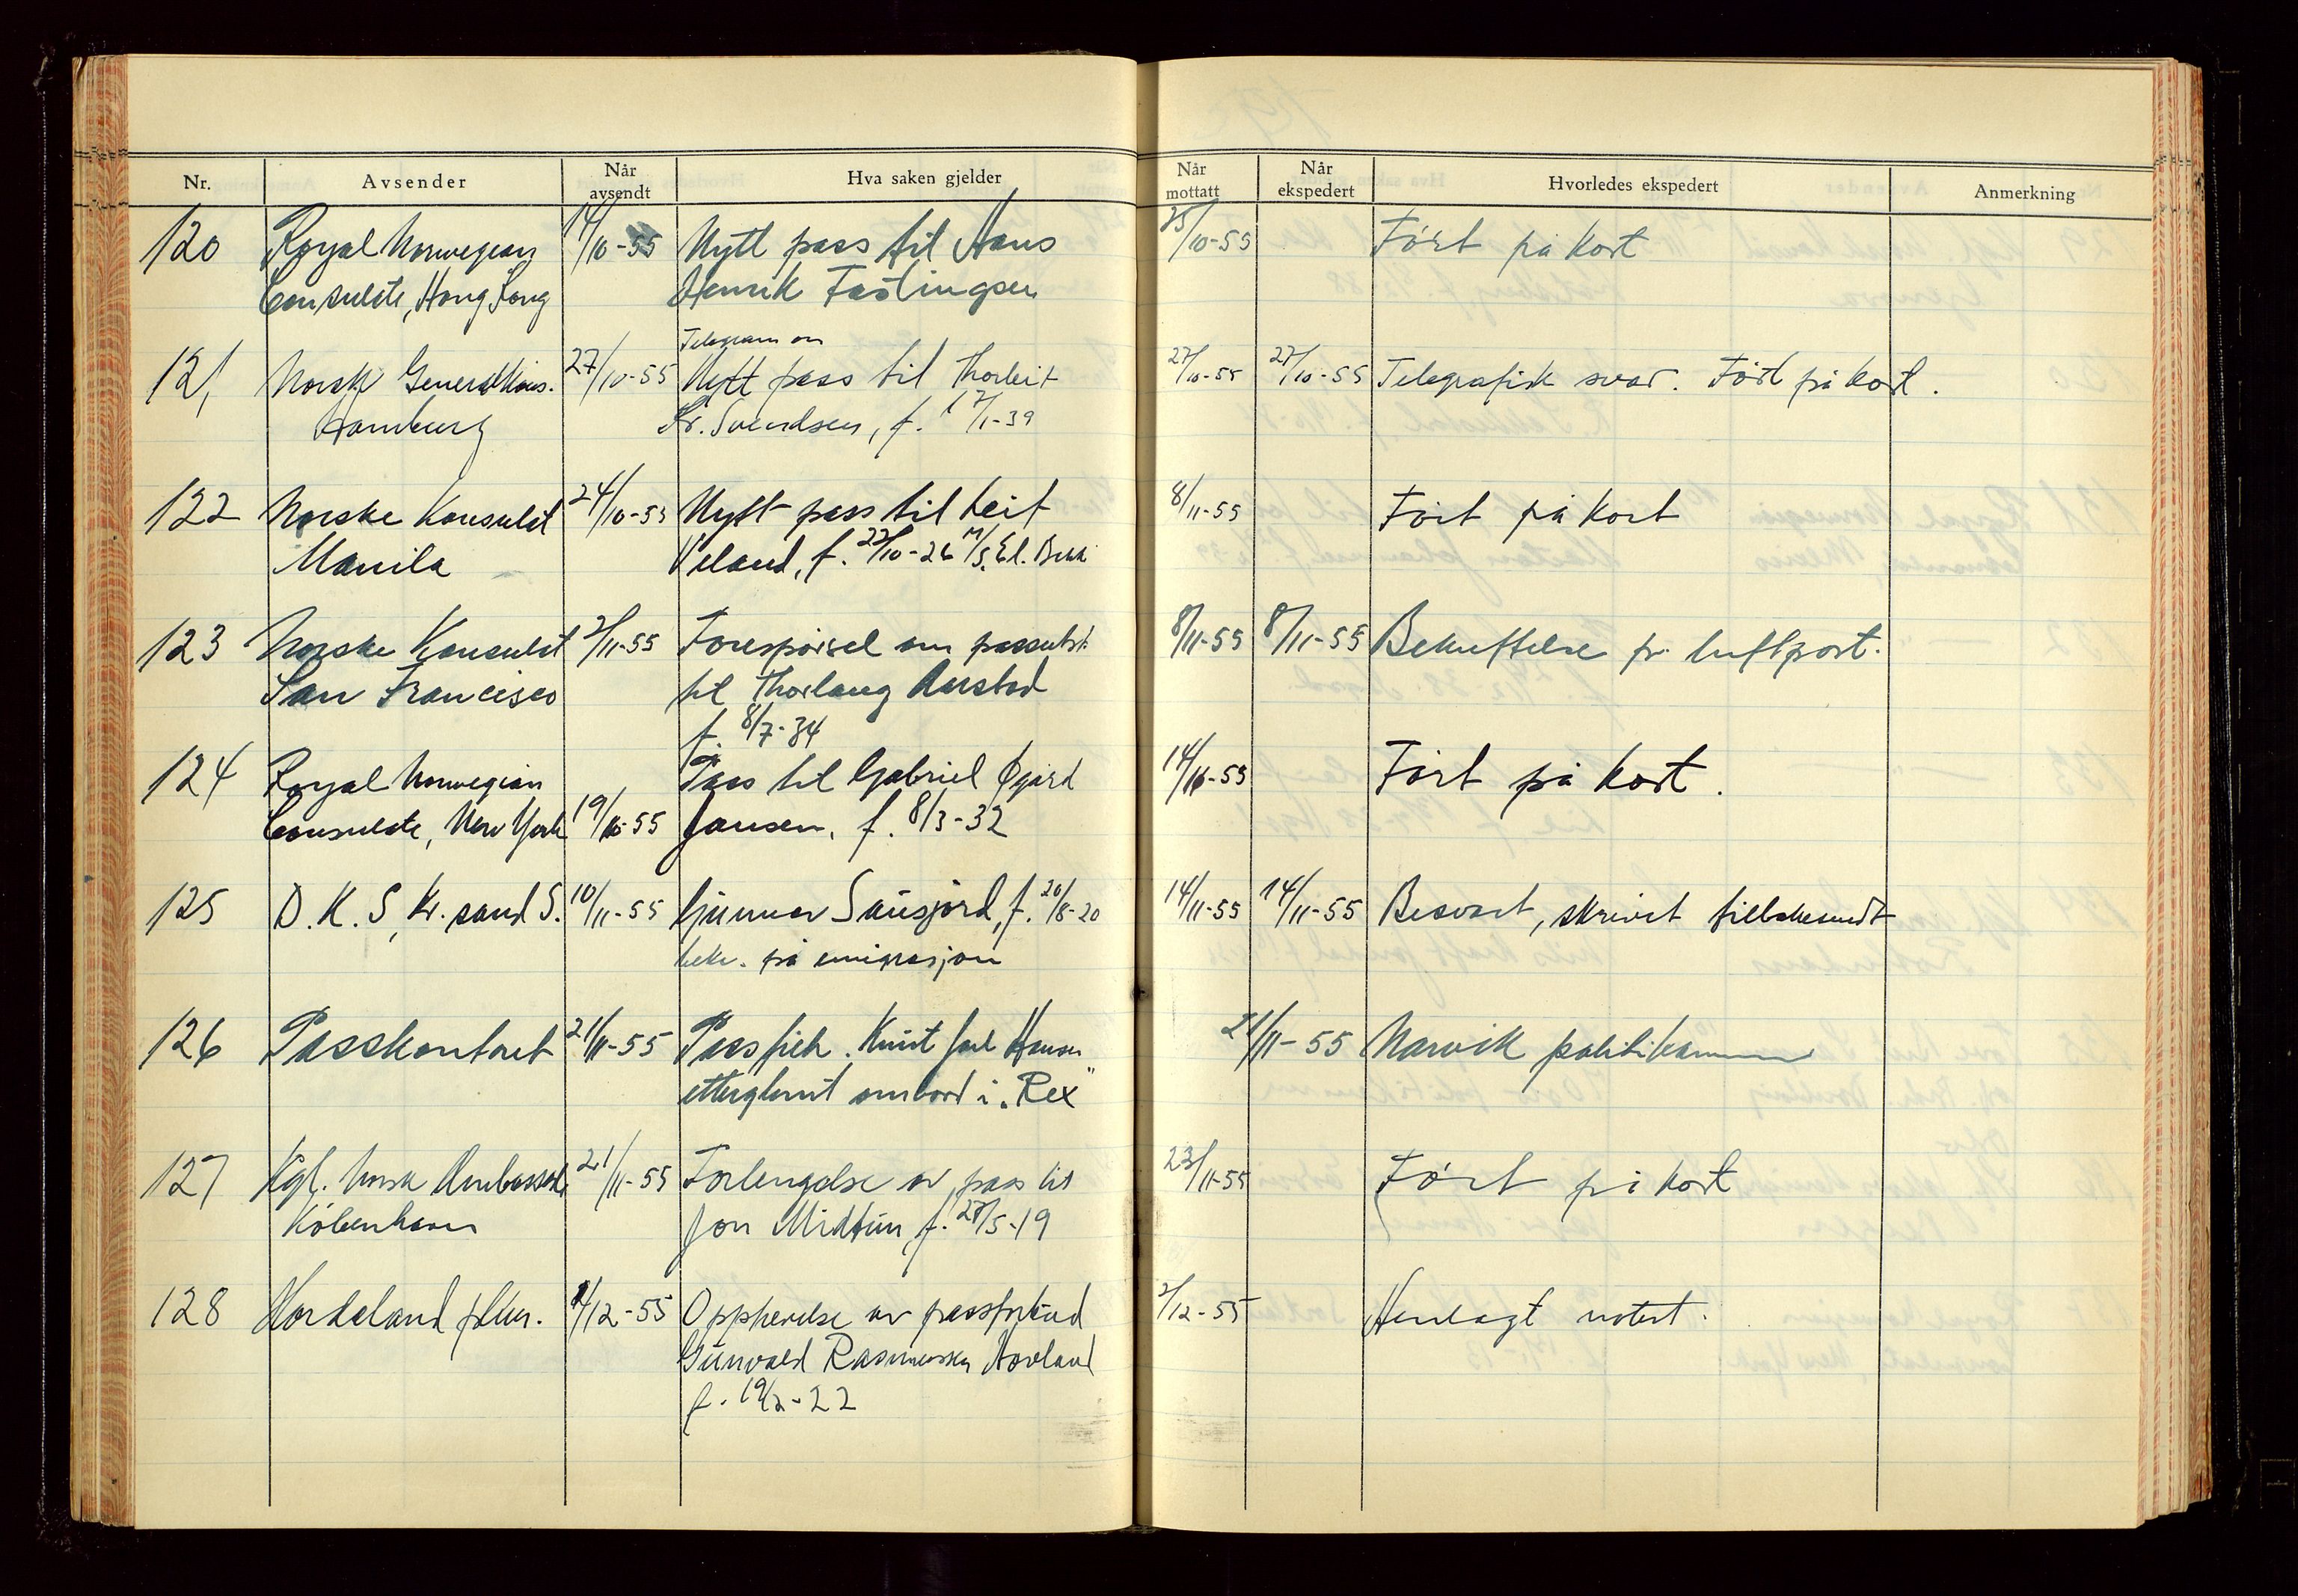 Nr. Avsender Når avsendt Hva saken gjelder Når mottatt Når ekspedert Hvorledes ekspedert Anmerkning
120 Royal Norwegian 14/10-55 Nytt pass til Hans 25/10-55 Ført på kort
Consulate, Hong Kong Henrik Fastingsen
Telegram om
121 Norsk Generalkons. 27/10-55 Nytt pass til Thorleif 27/10-55 27/10-55 Telegrafisk svar. Ført på kort.
Hamburg Kr. Svendsen, f. 17/1-39
122 Norske Konsulat 24/10-55 Nytt pass til Leif 8/11-55 Ført på kort
Manila Veland, f. 22/10-26 M/S. El.
123 Norske Konsulat 2/11-55 Forespørsel om passutst. 8/11-55 8/11-55 Bekreftelse pr. luftpost.
San Francisco til Thorlaug Aarstad
f. 8/7-34
124 Royal Norwegian Pass til Gabriel Øgård 14/10-55 Ført på kort.
Consulate, New York 19/10-55 Jansen, f. 8/3-32
125 D.K.S, Kr.sand S. 10/11-55 Gunnar Sausjord, f. 20/8-20 14/11-55 14/11-55 Besvart, skrivet tilbakesendt
bekr. på emigrasjon
126 Passkontoret 21/11-55 Pass tilh. Knut Jarl Hansen 21/11-55 Narvik politikammer
etterglemt ombord i "Rex"
127 Kgl. Norsk Ambassade 21/11-55 Forlengelse av pass til 23/11-55 Ført på kort
København Jon Midttun, f. 28/5-19
128 Hordaland p.km. 1/12-55 Opphevelse av passforbud 2/12-55 Henlagt notert.
Gunvald Rasmussen Hovland
f. 19/2-22